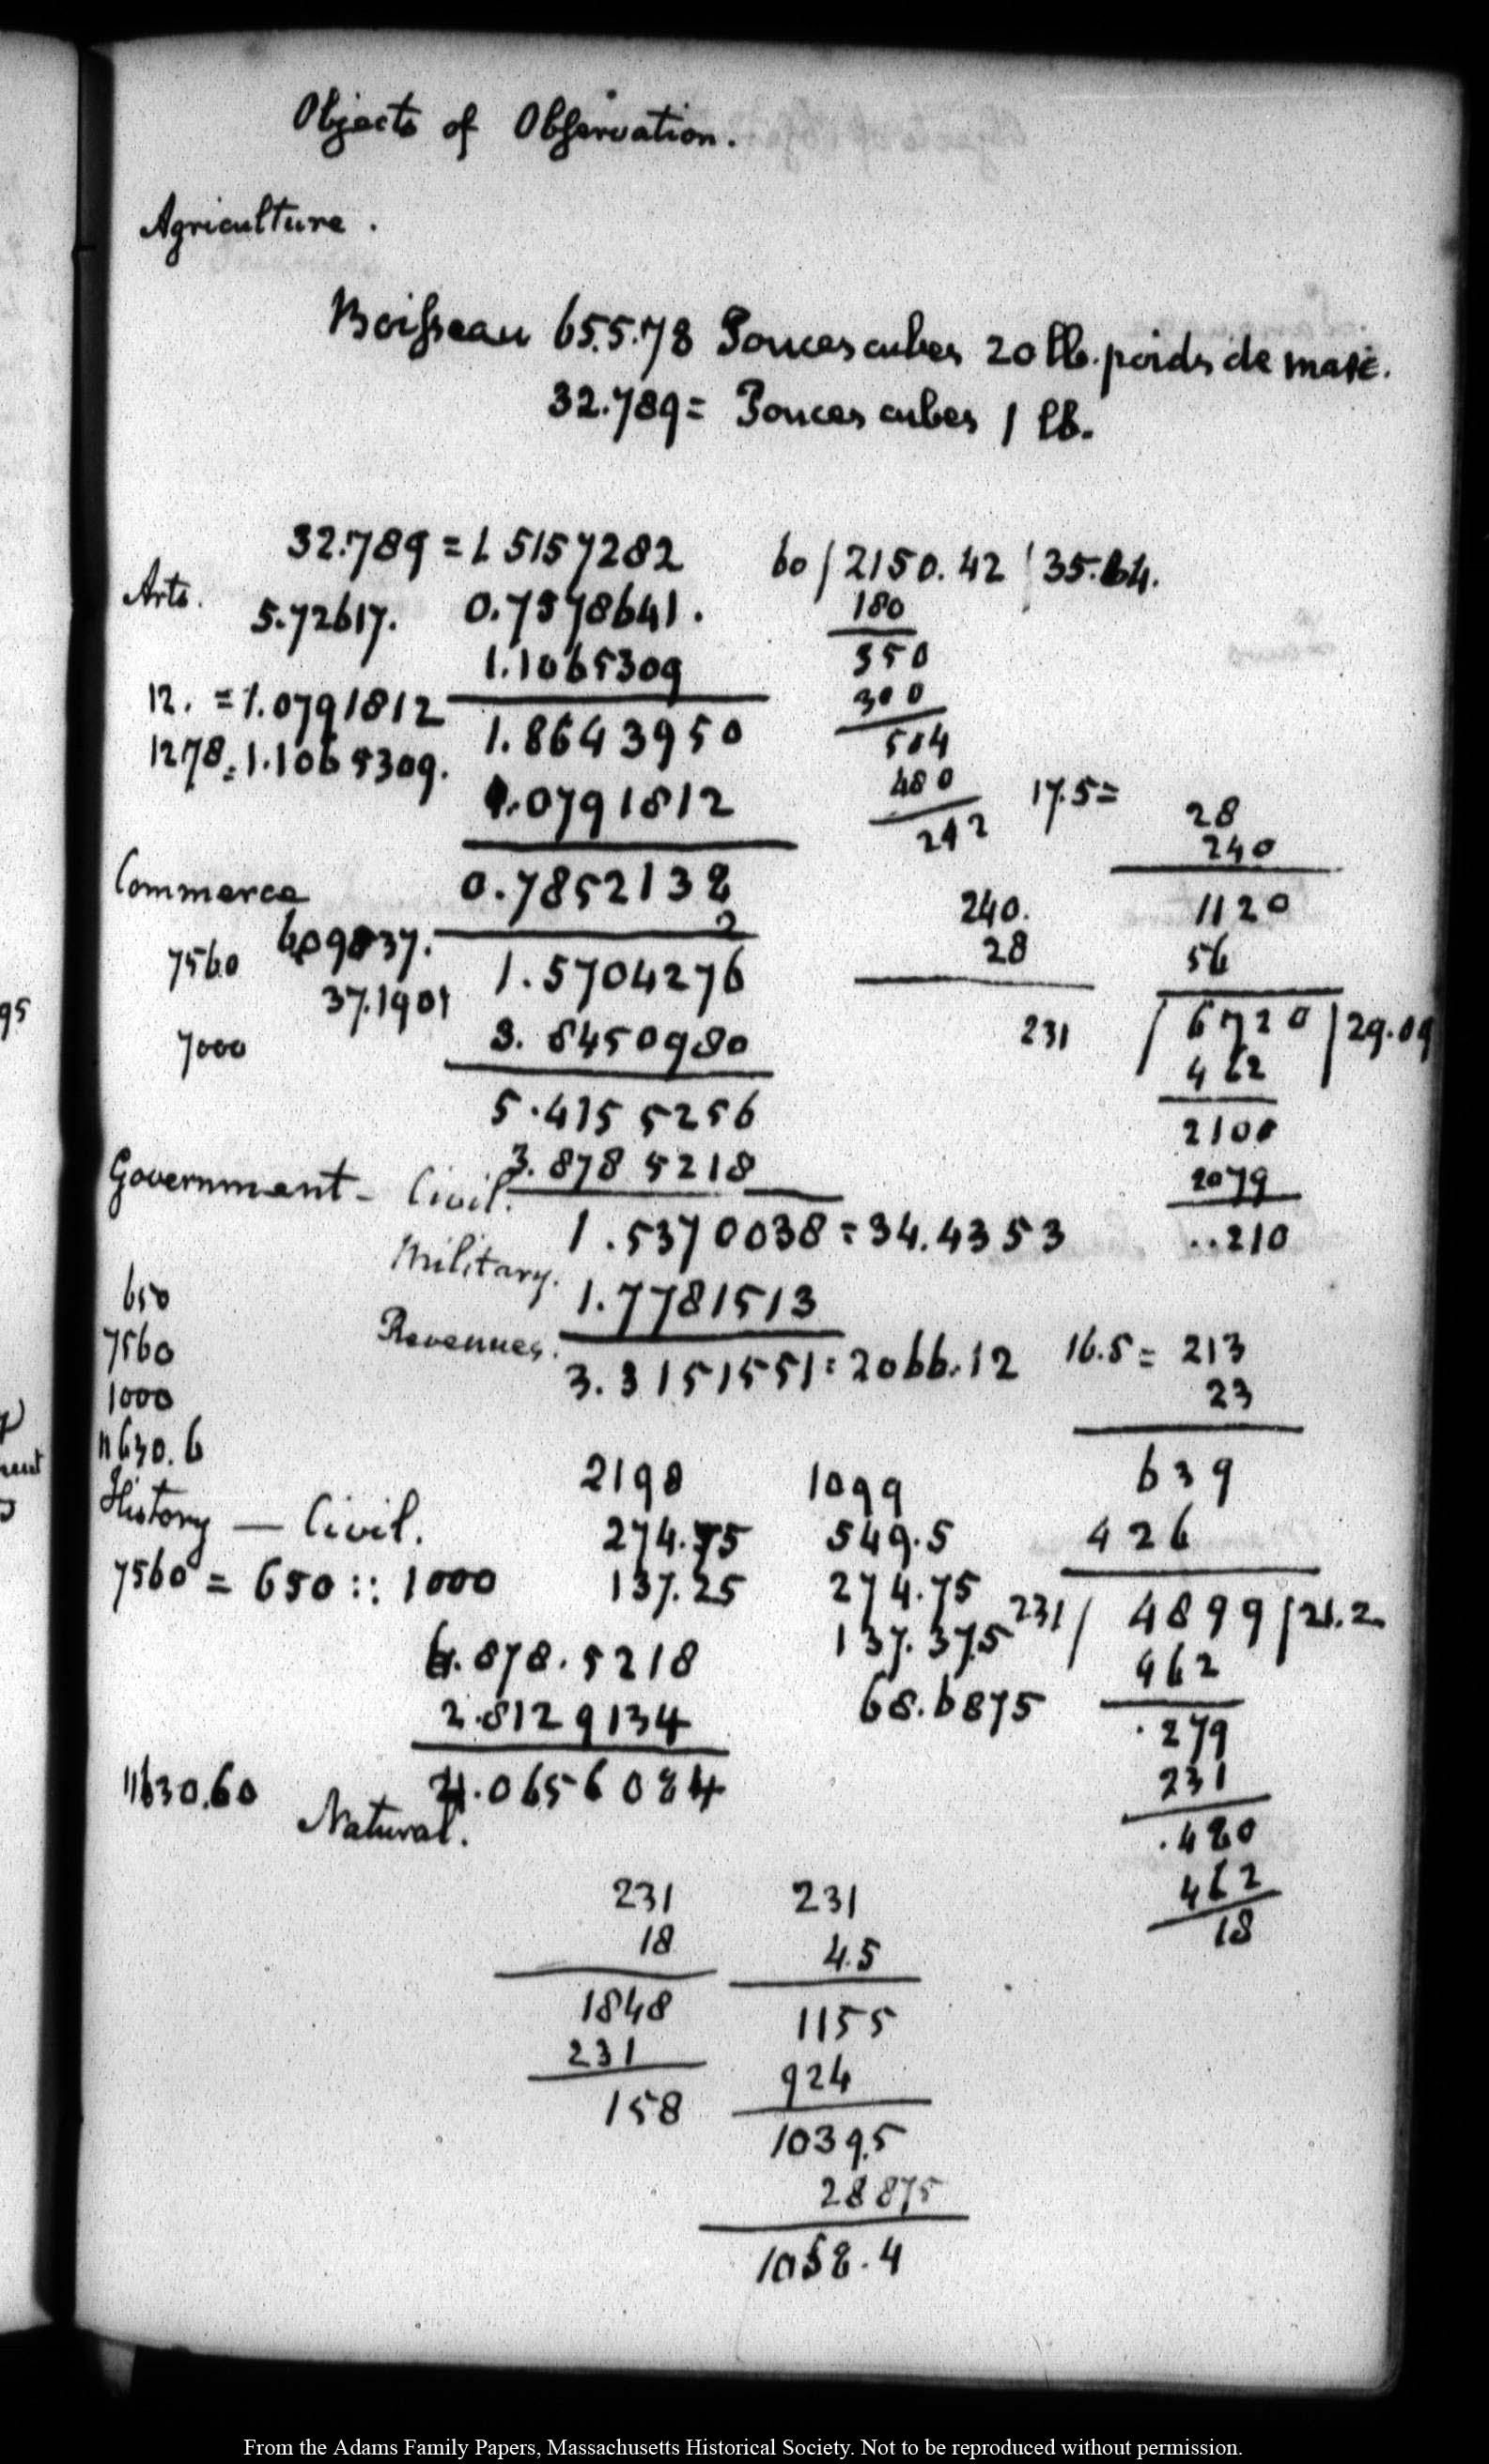 Objects of Observation.
Agriculture.
Boisseau 655.78 Pouces cubes 20 lb. poids de marc.
32.789 = Pouces cubes 1 lb.
32.789 = 1.5157282
Arts.
5.72617. 0.7578641.
1.1065309
12. = 1.0791812
1.8643950
1278 = 1.1065309.
1.0791812
Commerce
0.7852138
2
7560 609837.
1.5704276
37.1901
7000
3.8450980
5.4155256
Government - Civil.
3.8785218
1.5370038 = 34.4353
Military.
1.7781513
Revenues.
3.3151551 = 2066.12
650
7560
1000
11630.6
History — Civil.
7560 = 650 :: 1000
6.878.5218
2.8129134
4.0656084
11630.60
Natural.
2198
274.75
137.25
1099
549.5
274.75
137.375
68.6875
60 / 2150.42 / 35.84.
180
350
300
504
480
242
17.5 =
28
240
1120
56
240.
28
231 / 6720 / 29.09
462
2100
2079
..210
16.5 = 213
23
639
426
231 / 4899 / 21.2
462
.279
231
.480
462
18
231
18
1848
231
158
231
4.5
1155
924
1039.5
28875
1058.4
95
From the Adams Family Papers, Massachusetts Historical Society. Not to be reproduced without permission.